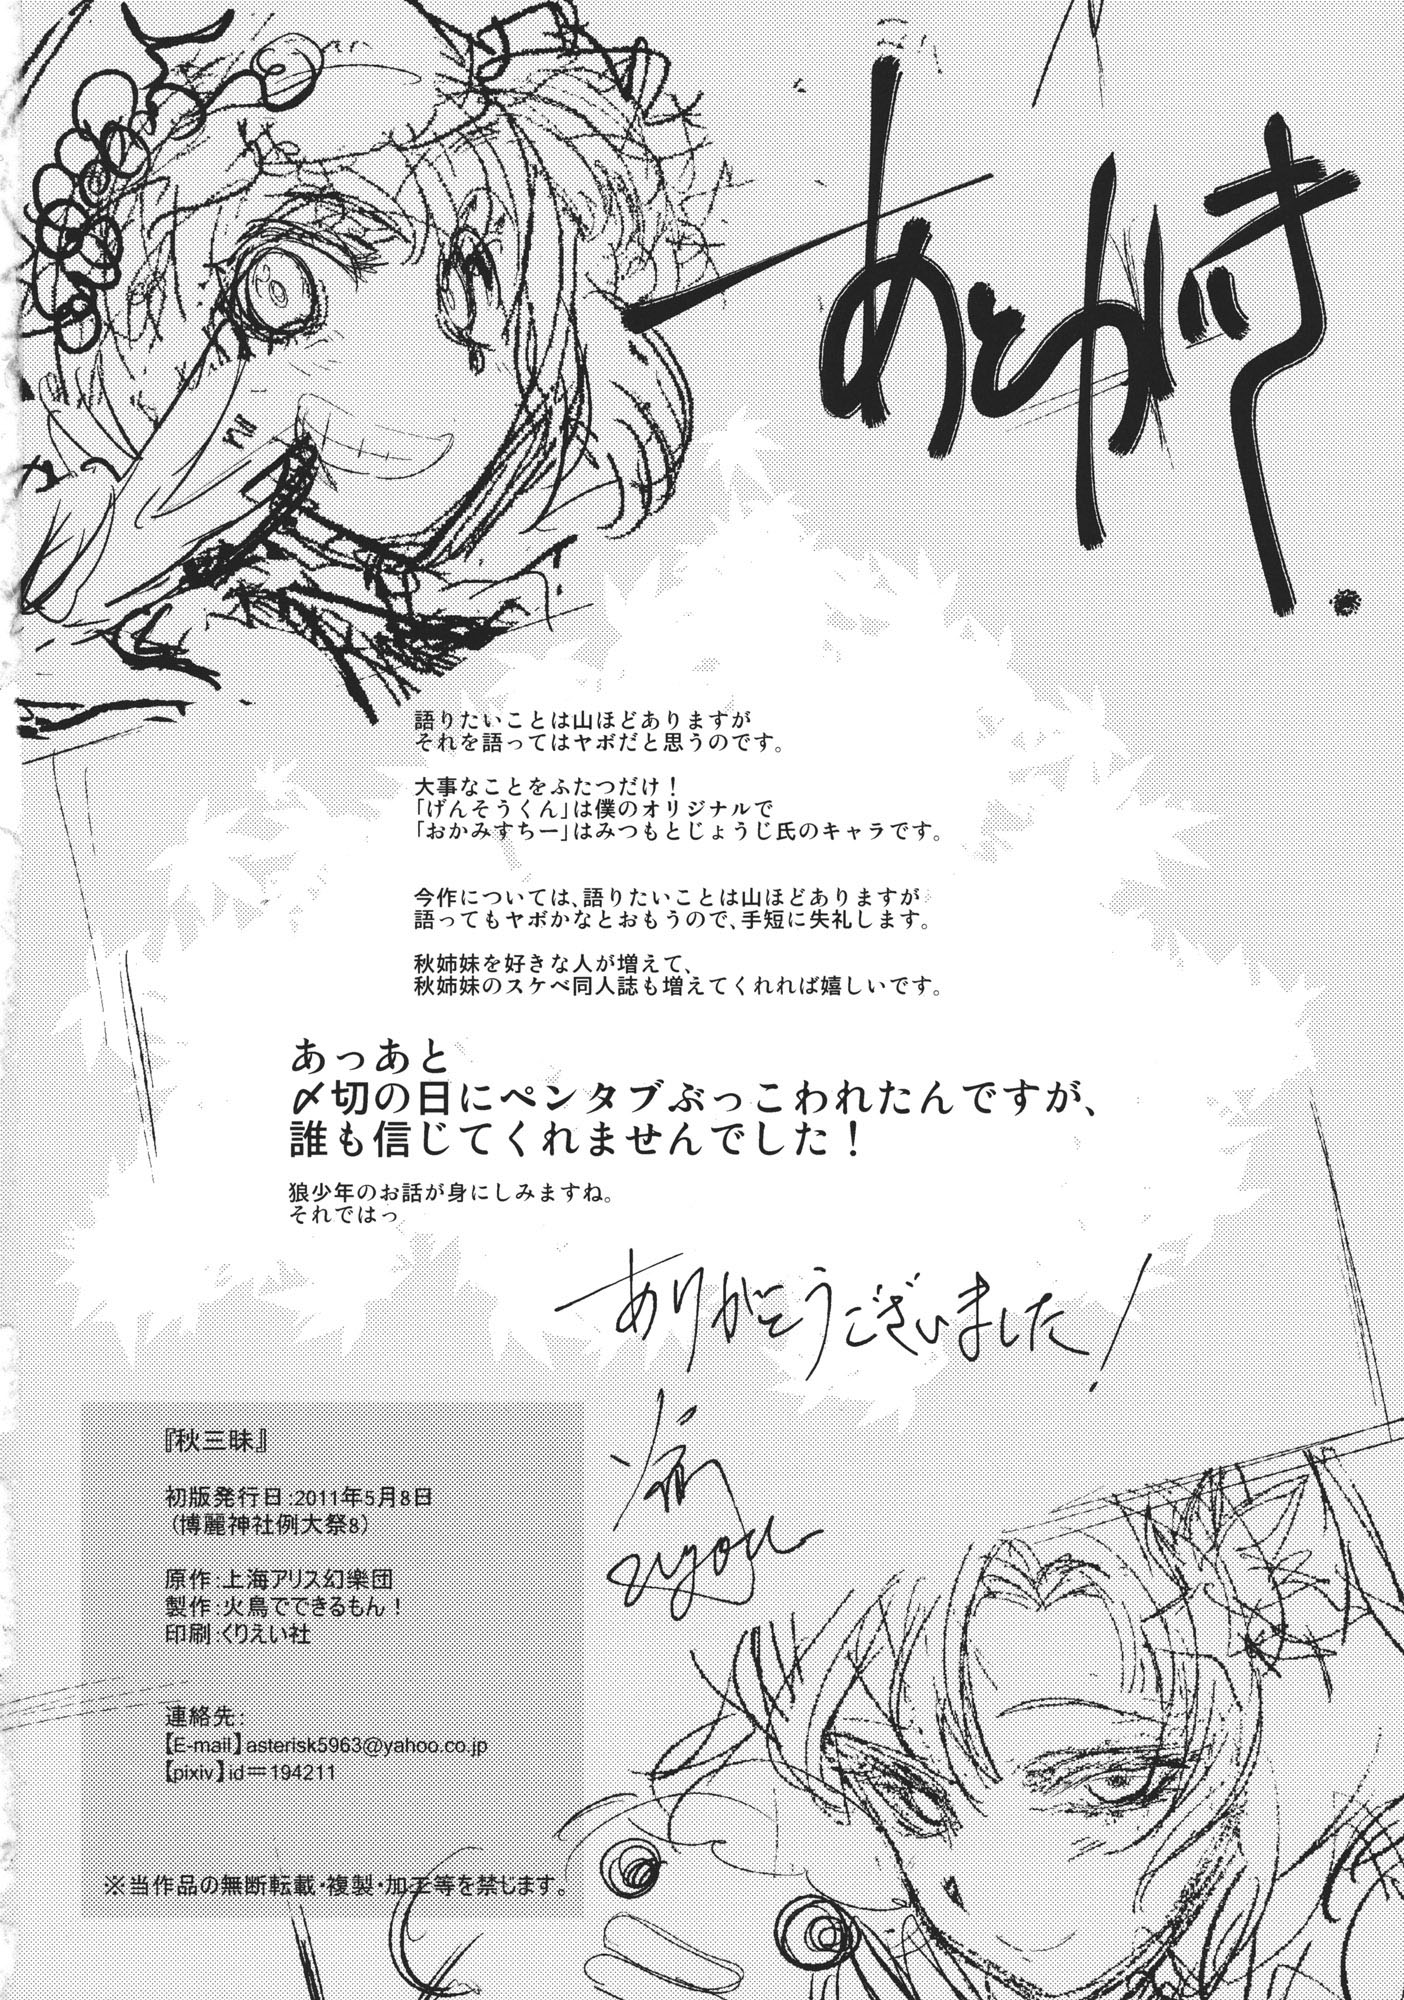 あとがき.
語りたいことは山ほどありますが
それを語ってはヤボだと思うのです。
大事なことをふたつだけ！
「げんそうくん」は僕のオリジナルで
「おかみすちー」はみつもとじょうじ氏のキャラです。
今作については、語りたいことは山ほどありますが
語ってもヤボかなとおもうので、手短に失礼します。
秋姉妹を好きな人が増えて、
秋姉妹のスケベ同人誌も増えてくれれば嬉しいです。
あっあと
〆切の日にペンタブぶっこわれたんですが、
誰も信じてくれませんでした！
狼少年のお話が身にしみますね。
それではっ
ありがとうございました！
『秋三昧』
初版発行日：2011年5月8日
（博麗神社例大祭8）
原作：上海アリス幻樂団
製作：火鳥でできるもん！
印刷：くりえい社
連絡先：
【E-mail】asterisk5963@yahoo.co.jp
【pixiv】id＝194211
※当作品の無断転載・複製・加工等を禁じます。